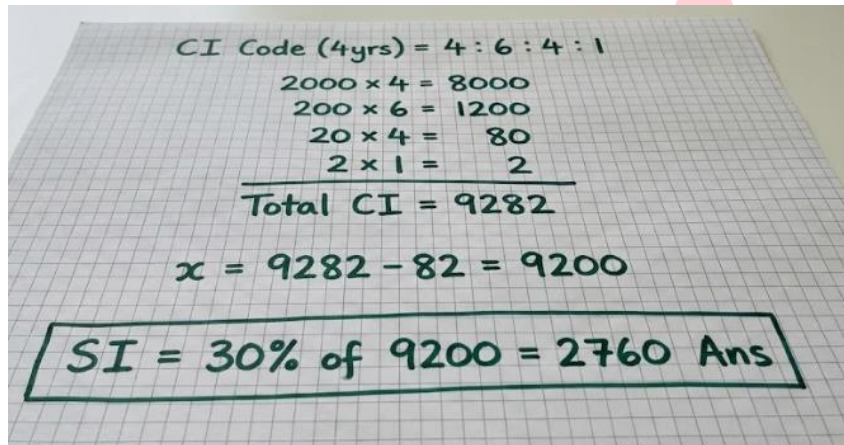 CI Code (4yrs) = 4 : 6 : 4 : 1
2000 x 4 = 8000
200 x 6 = 1200
20 x 4 = 80
2 x 1 = 2
Total CI = 9282
x = 9282 - 82 = 9200
SI = 30% of 9200 = 2760 Ans